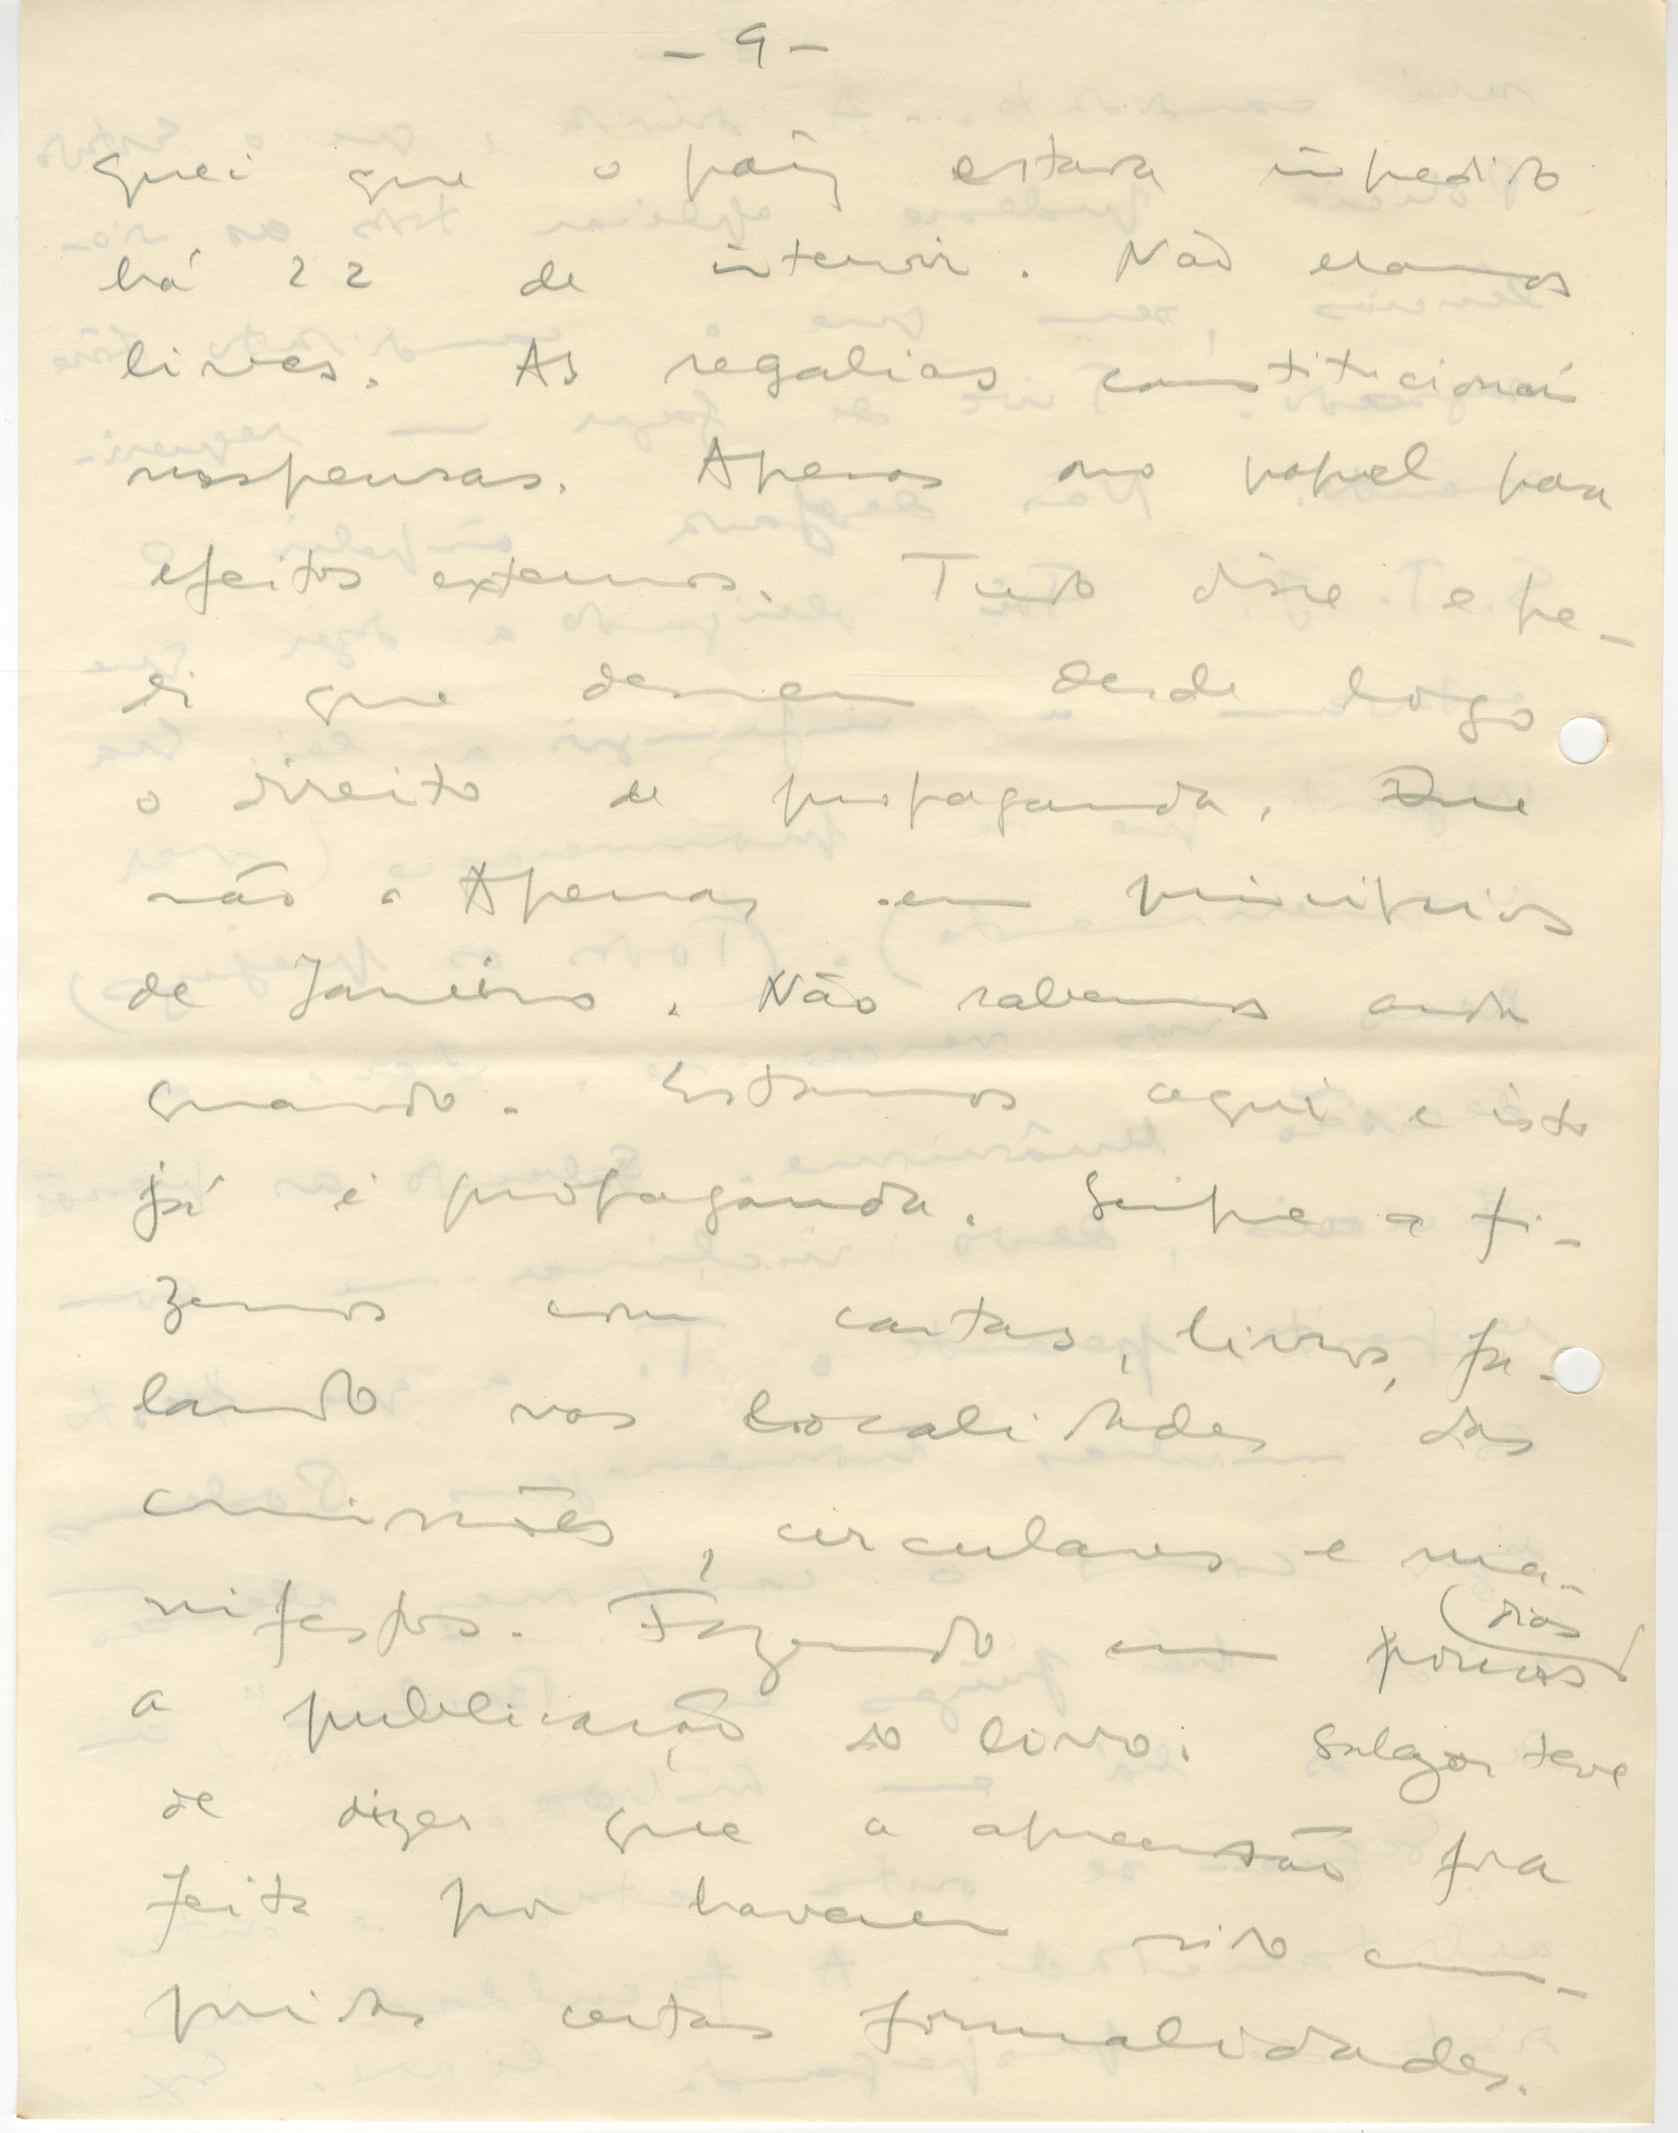 - 9 -
quei que o país estava impedido
há 22 de intervir. Não eramos
livres. As regalias constitucionais
suspensas. Apenas no papel para
efeitos externos. Tudo disse e pe-
di que dessem desde logo
o direito de propaganda. Que
não. Apenas em principios
de Janeiro. Não sabemos ainda
quando. Estamos aqui e isto
já é propaganda. Sempre a fi-
zemos com cartas, livros, fa-
lando nas localidades das
comissões, circulares e ma-
nifestos. Fazendo em poucos (dias)
a publicação do livro. Salazar teve
de dizer que a apreensão fora
feita por haverem sido cum-
pridas certas formalidades.